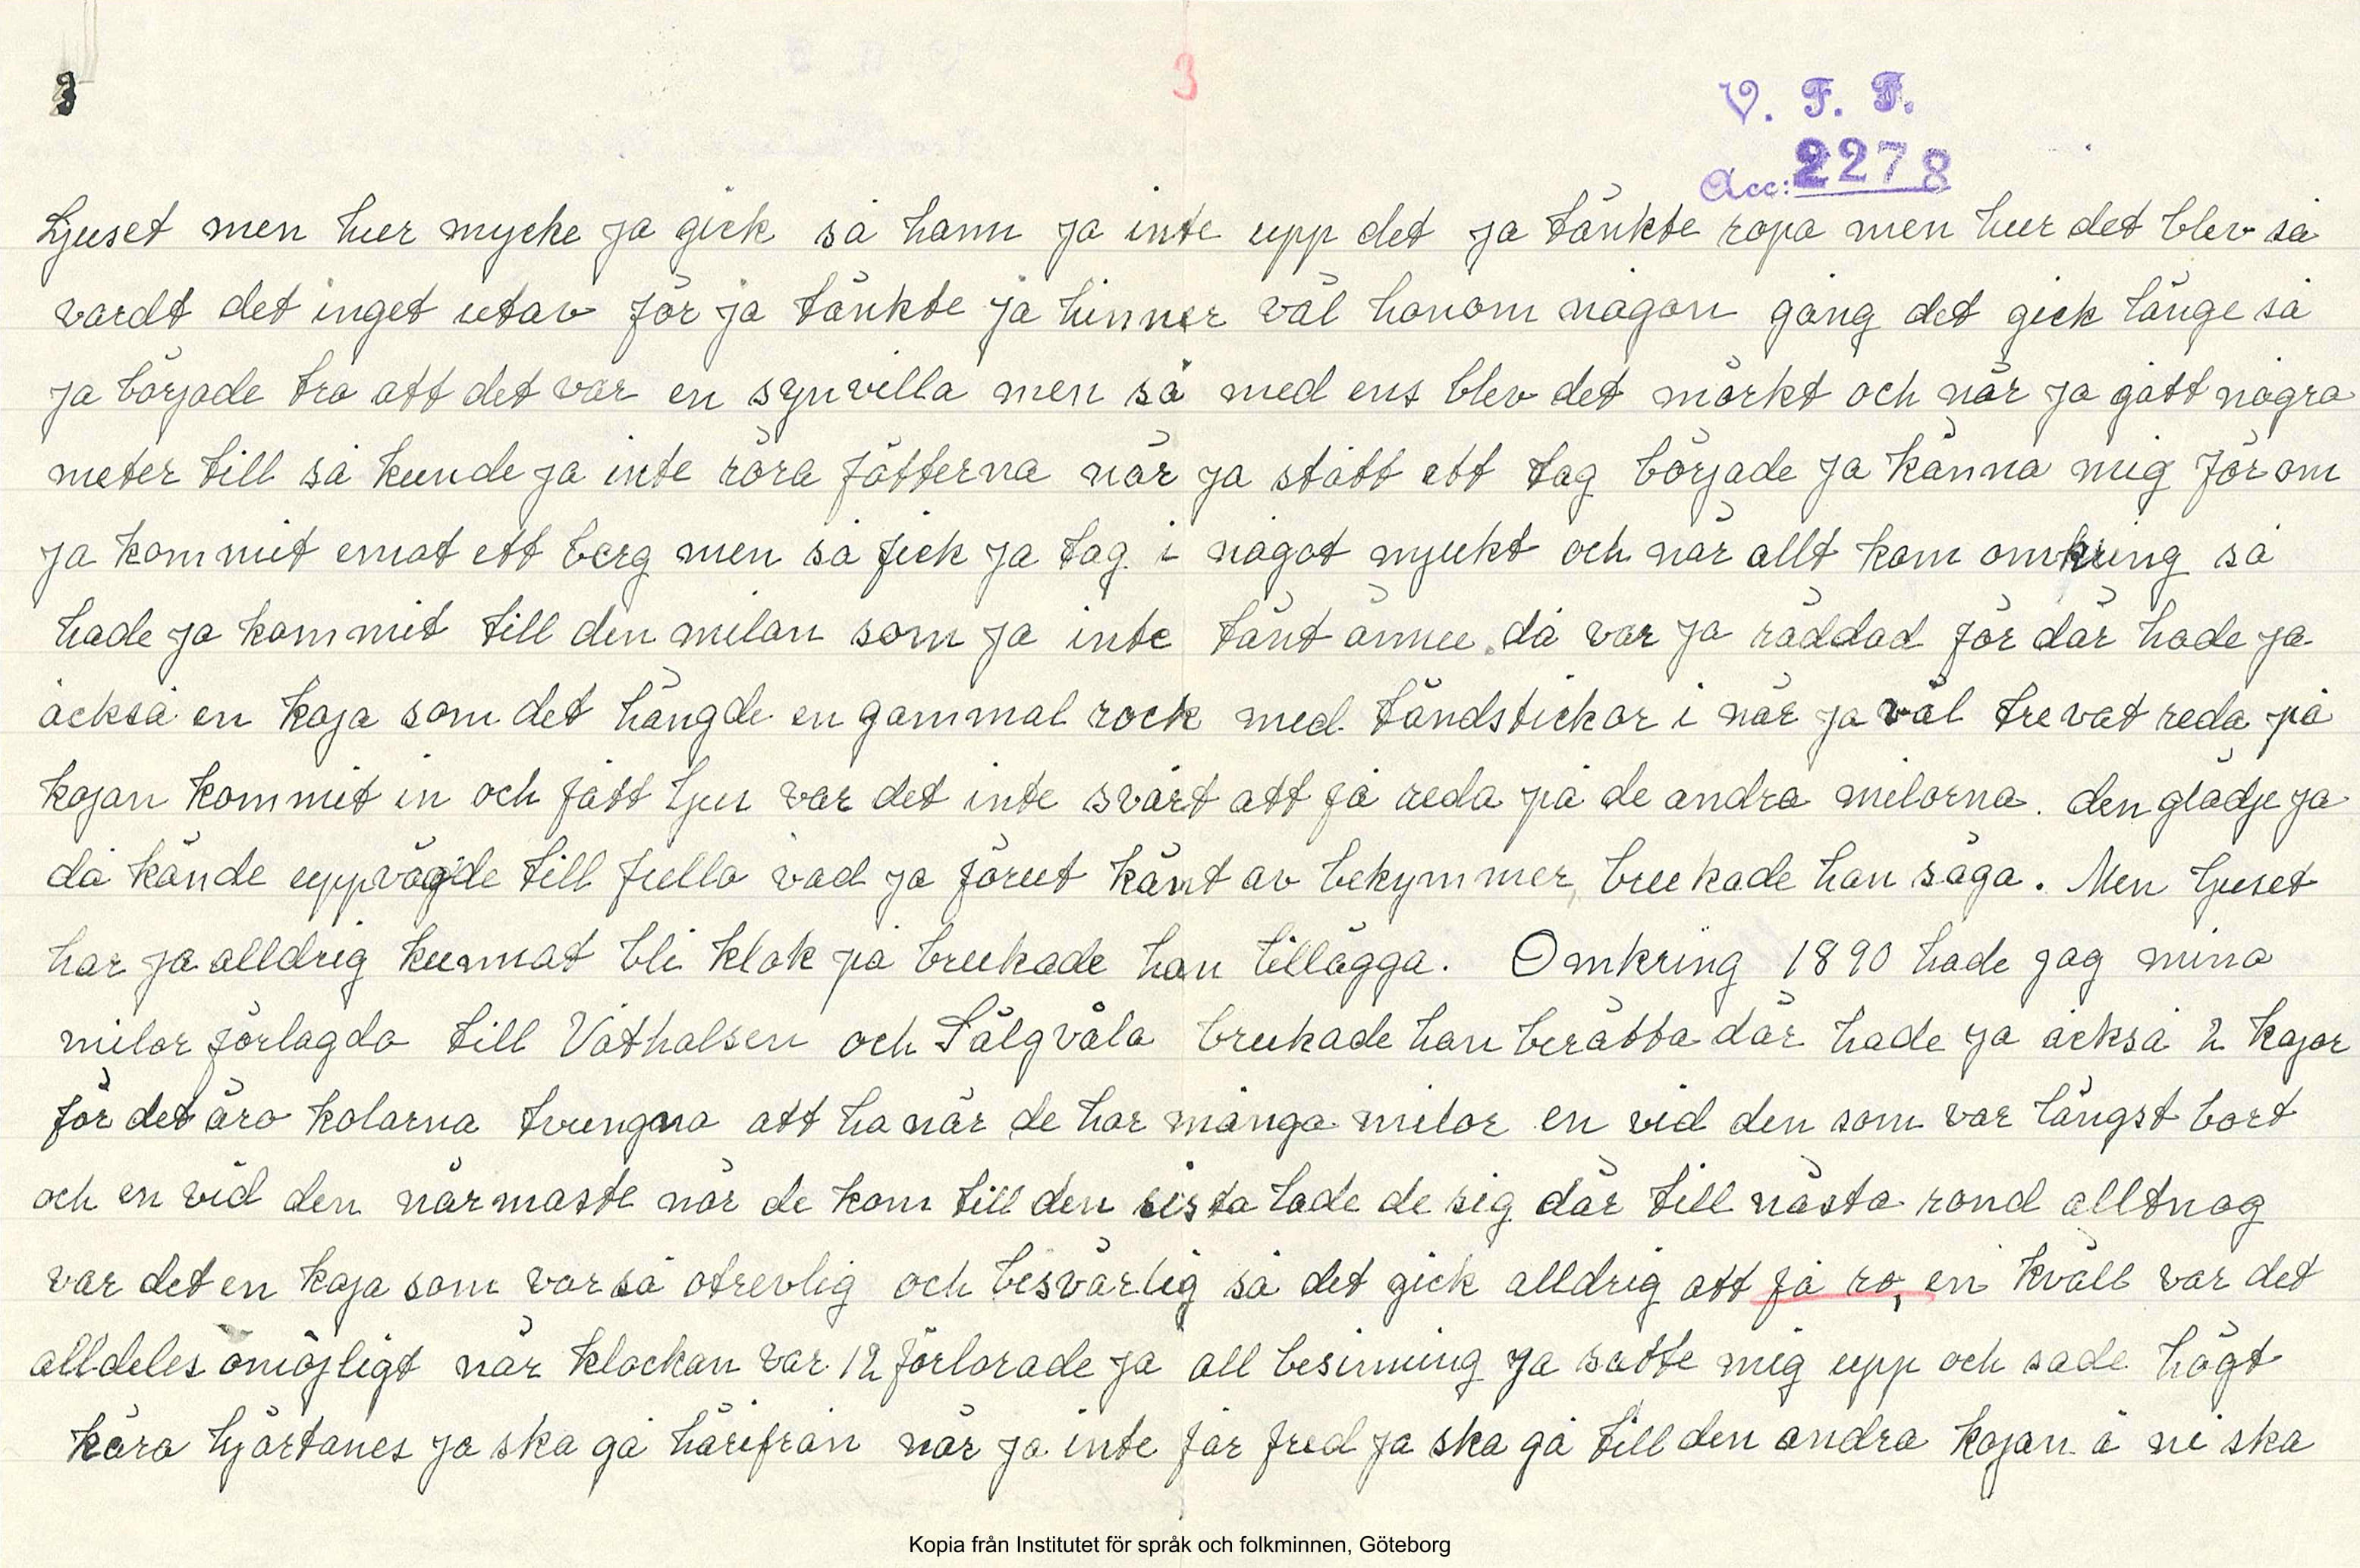 3
3
V. F. F.
Acc: 2278
Ljuset men hur mycke ja gick så hann ja inte upp det ja tänkte ropa men hur det blev så
vardt det inget utav för ja tänkte ja hinner väl honom någon gång det gick länge så
ja började tro att det var en synvilla men så med ens blev det mörkt och när ja gått några
meter till så kunde ja inte röra fötterna när ja stått ett tag började ja känna mig för om
ja kommit emot ett berg men så fick ja tag i något mjukt och när allt kom omkring så
hade ja kommit till den milan som ja inte tänt ännu. då var ja räddad för där hade ja
åckså en koja som det hängde en gammal rock med tändstickor i när ja väl trevat reda på
kojan kommit in och fått ljus var det inte svårt att få reda på de andra milorna. den glädje ja
då kände uppvägde till fullo vad ja förut känt av bekymmer, brukade han säga. Men ljuset
har ja alldrig kunnat bli klok på brukade han tillägga. Omkring 1890 hade jag mina
milor förlagda till Våthalsen och Sälgvåla brukade han berätta där hade ja åckså 2 kojor
för det äro kolarna tvungna att ha när de har många milor en vid den som var längst bort
och en vid den närmaste när de kom till den sista lade de sig där till nästa rond alltnog
var det en koja som var så otrevlig och besvärlig så det gick alldrig att få ro, en kväll var det
alldeles omöjligt när klockan var 12 förlorade ja all besinning ja satte mig upp och sade högt
kära hjärtanes ja ska gå härifrån när ja inte får fred ja ska gå till den andra kojan å ni ska
Kopia från Institutet för språk och folkminnen, Göteborg